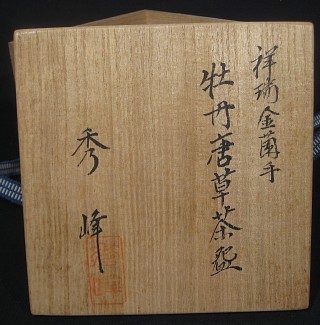 祥瑞金襴手
牡丹唐草茶盌
秀峰